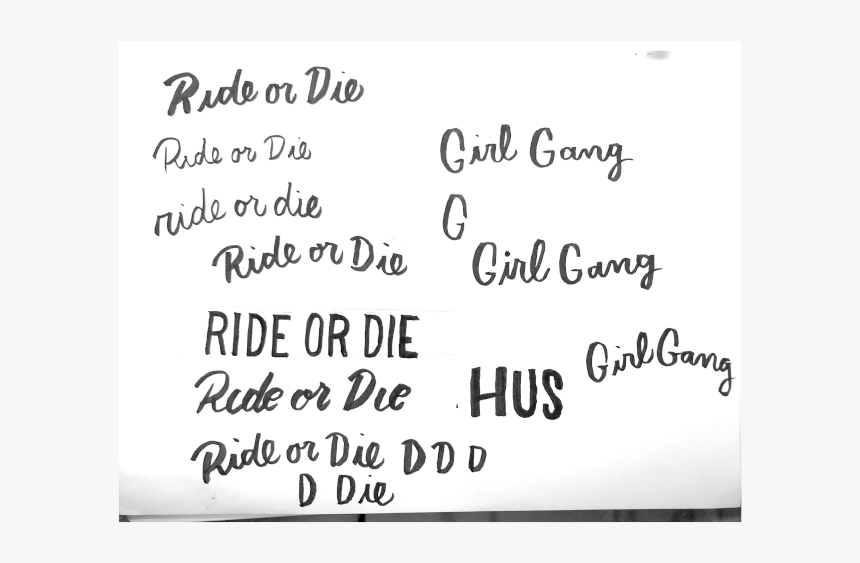 Ride or Die
Ride or Die
Girl Gang
ride or die
G
Ride or Die
Girl Gang
RIDE OR DIE
Girl Gang
Ride or Die
HUS
Ride or Die D D D
D Die